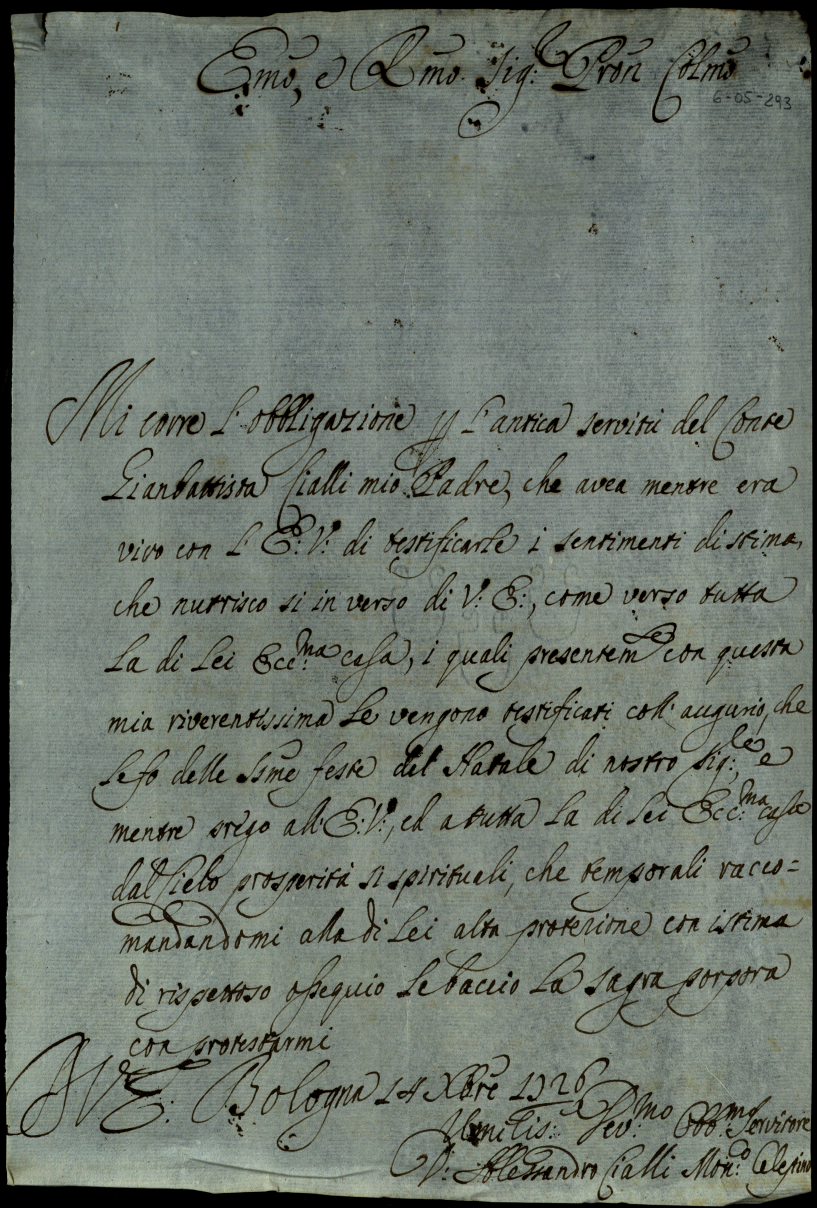 Emo, e Rmo Sig:r Pron Colmo
6-05-293
Mi corre l'obbligazione p l'antica servitù del Conte
Gianbattista Cialli mio Padre, che avea mentre era
vivo con l'E: V: di testificarle i sentimenti di stima,
che nutrisco si in verso di V: E:, come verso tutta
la di lei Ecc:ma casa, i quali presentemte con questa
mia riverentissima le vengono testificati coll' augurio, che
le fo delle Ssme feste del Natale di nostro Sig:re, e
mentre prego all' E: V:, ed a tutta la di lei Ecc:ma casa
dal Cielo prosperità si spirituali, che temporali racco=
mandandomi alla di lei alta protezione con istima
di rispettoso ossequio le baccio la sagra porpora
con protestarmi
D V E: Bologna 14 Xbre 1726
Umilis: Dev:mo Obb:mo Servitore
D: Alessandro Cialli Mon:o Celestino